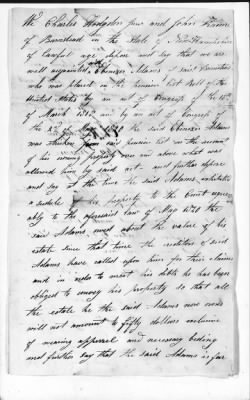 We Charles Hodgdon Junr and John Tasker
of Barnstead in the State of New Hampshire
of lawful age depose and say that we are
well acquainted Ebenezer Adams of said Barnstead
who was placed on the pension list Roll of the
United States by an act of Congress of the 18th
of March 1818 and by an act of Congress
the 1st of May the said Ebenezer Adams
was stricken from said pension list on the account
of his owning property over and above what was
allowed him by said act and further depose
and say at the time he said Adams exhibited
a schedule of his property to the Court agree-
ably to the aforesaid law of May 1820 the
said Adams owed about the value of his
estate since that time the creditors of said
Adams have called upon him for their claims
and in order to meet his debts he has been
obliged to convey his property so that all
the estate he the said Adams now owns
will not amount to fifty dollars exclusive
of wearing apparral and necessary beding
and further say that the said Adams is far